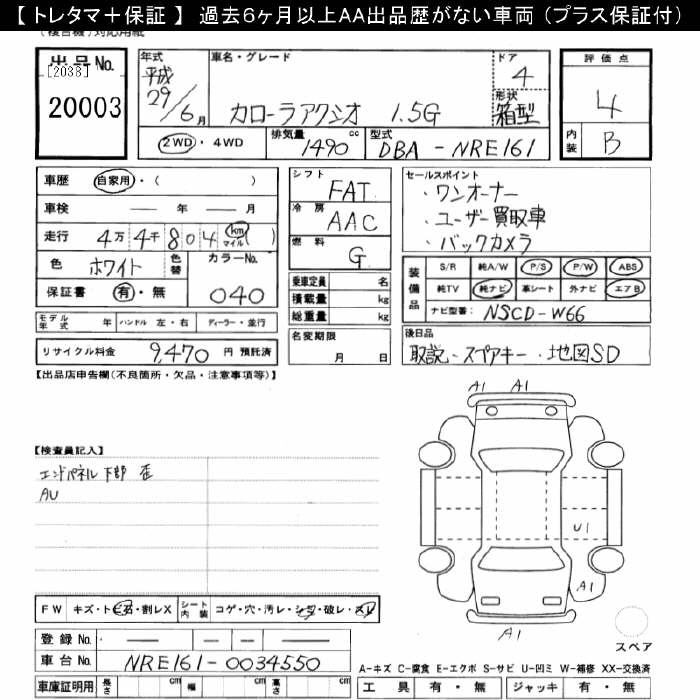 【 トレタマ＋保証 】 過去6ヶ月以上AA出品歴がない車両 (プラス保証付)
出品No. [2033] 20003
年式 平成 29/6月
車名・グレード カローラアクシオ 1.5G
ドア 4
形状 箱型
2WD・4WD
排気量 1490 cc
型式 DBA-NRE161
評価点 4
内装 B
車歴 自家用・( )
車検 ― 年 ― 月
走行 4万4千804 km マイル ( )
色 ホワイト 色替 カラーNo. 040
保証書 有・無
シフト FAT
冷房 AAC
燃料 G
乗車定員 名
積載量 kg
総重量 kg
名変期限 月 日
セールスポイント
・ワンオーナー
・ユーザー買取車
・バックカメラ
装備品
S/R 純A/W P/S P/W ABS
純TV 純ナビ 革シート 外ナビ エアB
ナビ型番: NSCD-W66
後日品
取説・スペアキー・地図SD
モデル年式 年 ハンドル 左・右 ディーラー・並行
リサイクル料金 9,470 円 預託済
【出品店申告欄(不良箇所・欠品・注意事項等)】
A1 A1
【検査員記入】
エンドパネル下部 歪
AU
U1
A1
A1
FW キズ・トビ石・割レX シート内装 コゲ・穴・汚レ・シワ・破レ・スレ
登録No. ― ― ―
車台No. NRE161-0034550
車庫証明用 長さ cm 幅 cm 高さ cm
スペア
A－キズ C－腐食 E－エクボ S－サビ U－凹ミ W－補修 XX－交換済
工具 有・無 ジャッキ 有・無